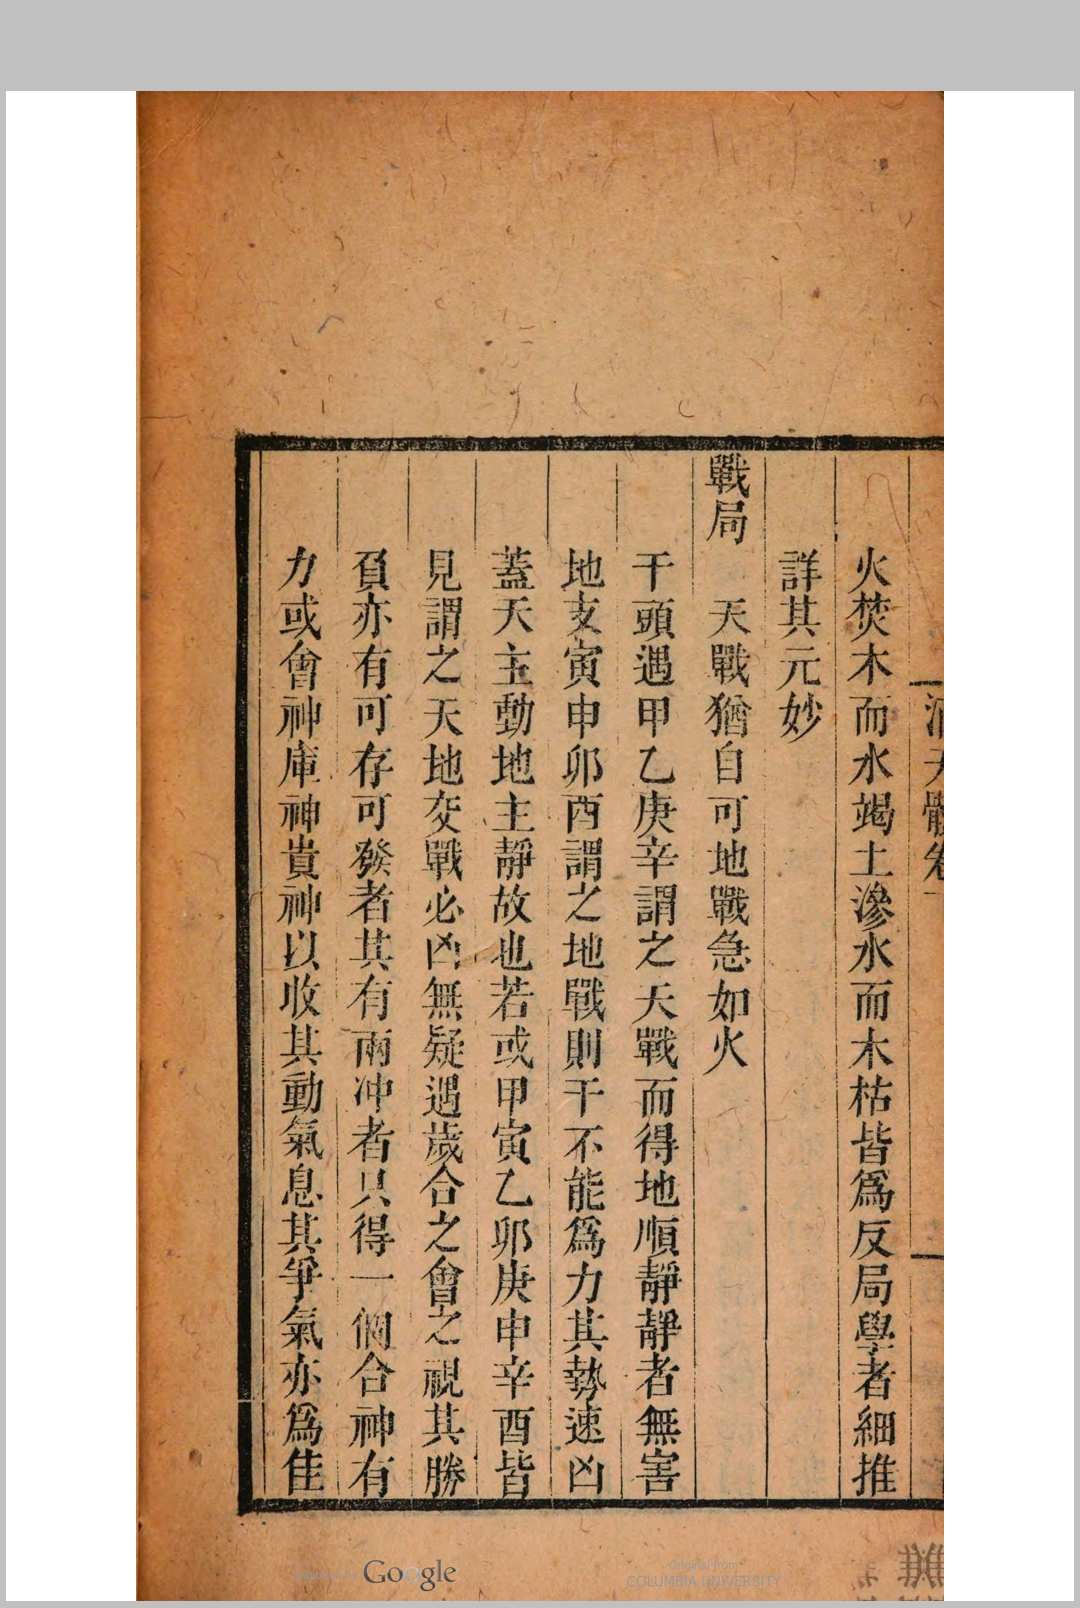 滴天髓卷一
火焚木而水竭土滲水而木枯皆爲反局學者細推
詳其元妙
戰局
天戰猶自可地戰急如火
干頭遇甲乙庚辛謂之天戰而得地順靜靜者無害
地支寅申卯酉謂之地戰則干不能爲力其勢速凶
蓋天主動地主靜故也若或甲寅乙卯庚申辛酉皆
見謂之天地交戰必凶無疑遇歲合之會之視其勝
負亦有可存可發者其有兩冲者只得一個合神有
力或會神庫神貴神以收其動氣息其爭氣亦爲佳
Google
Original from
COLUMBIA UNIVERSITY